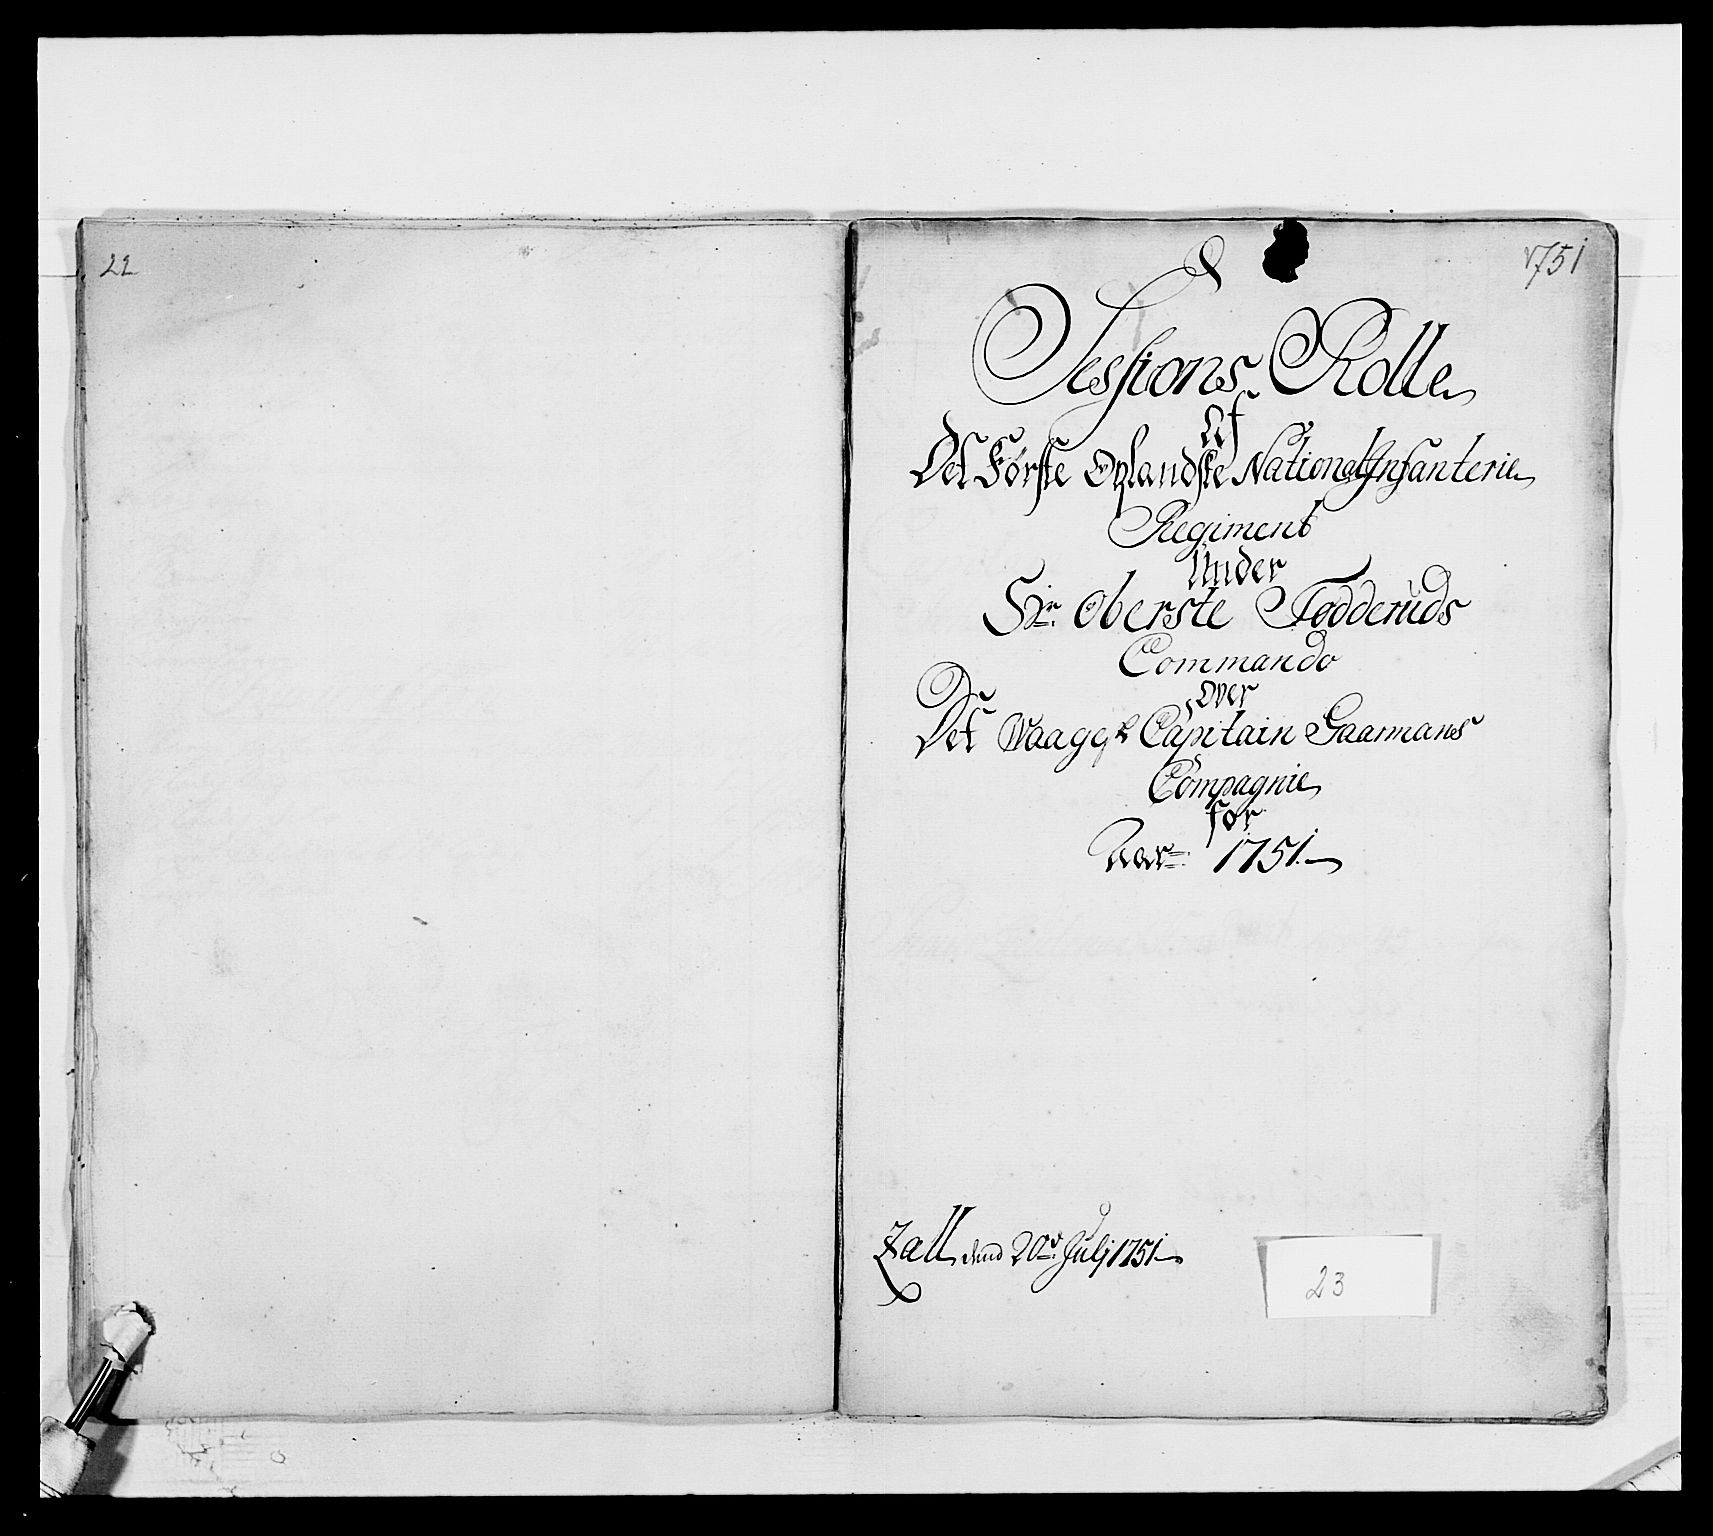 22
1751
Sessions Rolle
Af
Det Første Oplandske National Infanterie
Regiment
Under
Hr. Oberste Fødderuds
Commando
over
Det Waagse Capitain Gaarmans
Compagnie
for
Aar 1751.
Zall dend 20de Julj 1751.
23